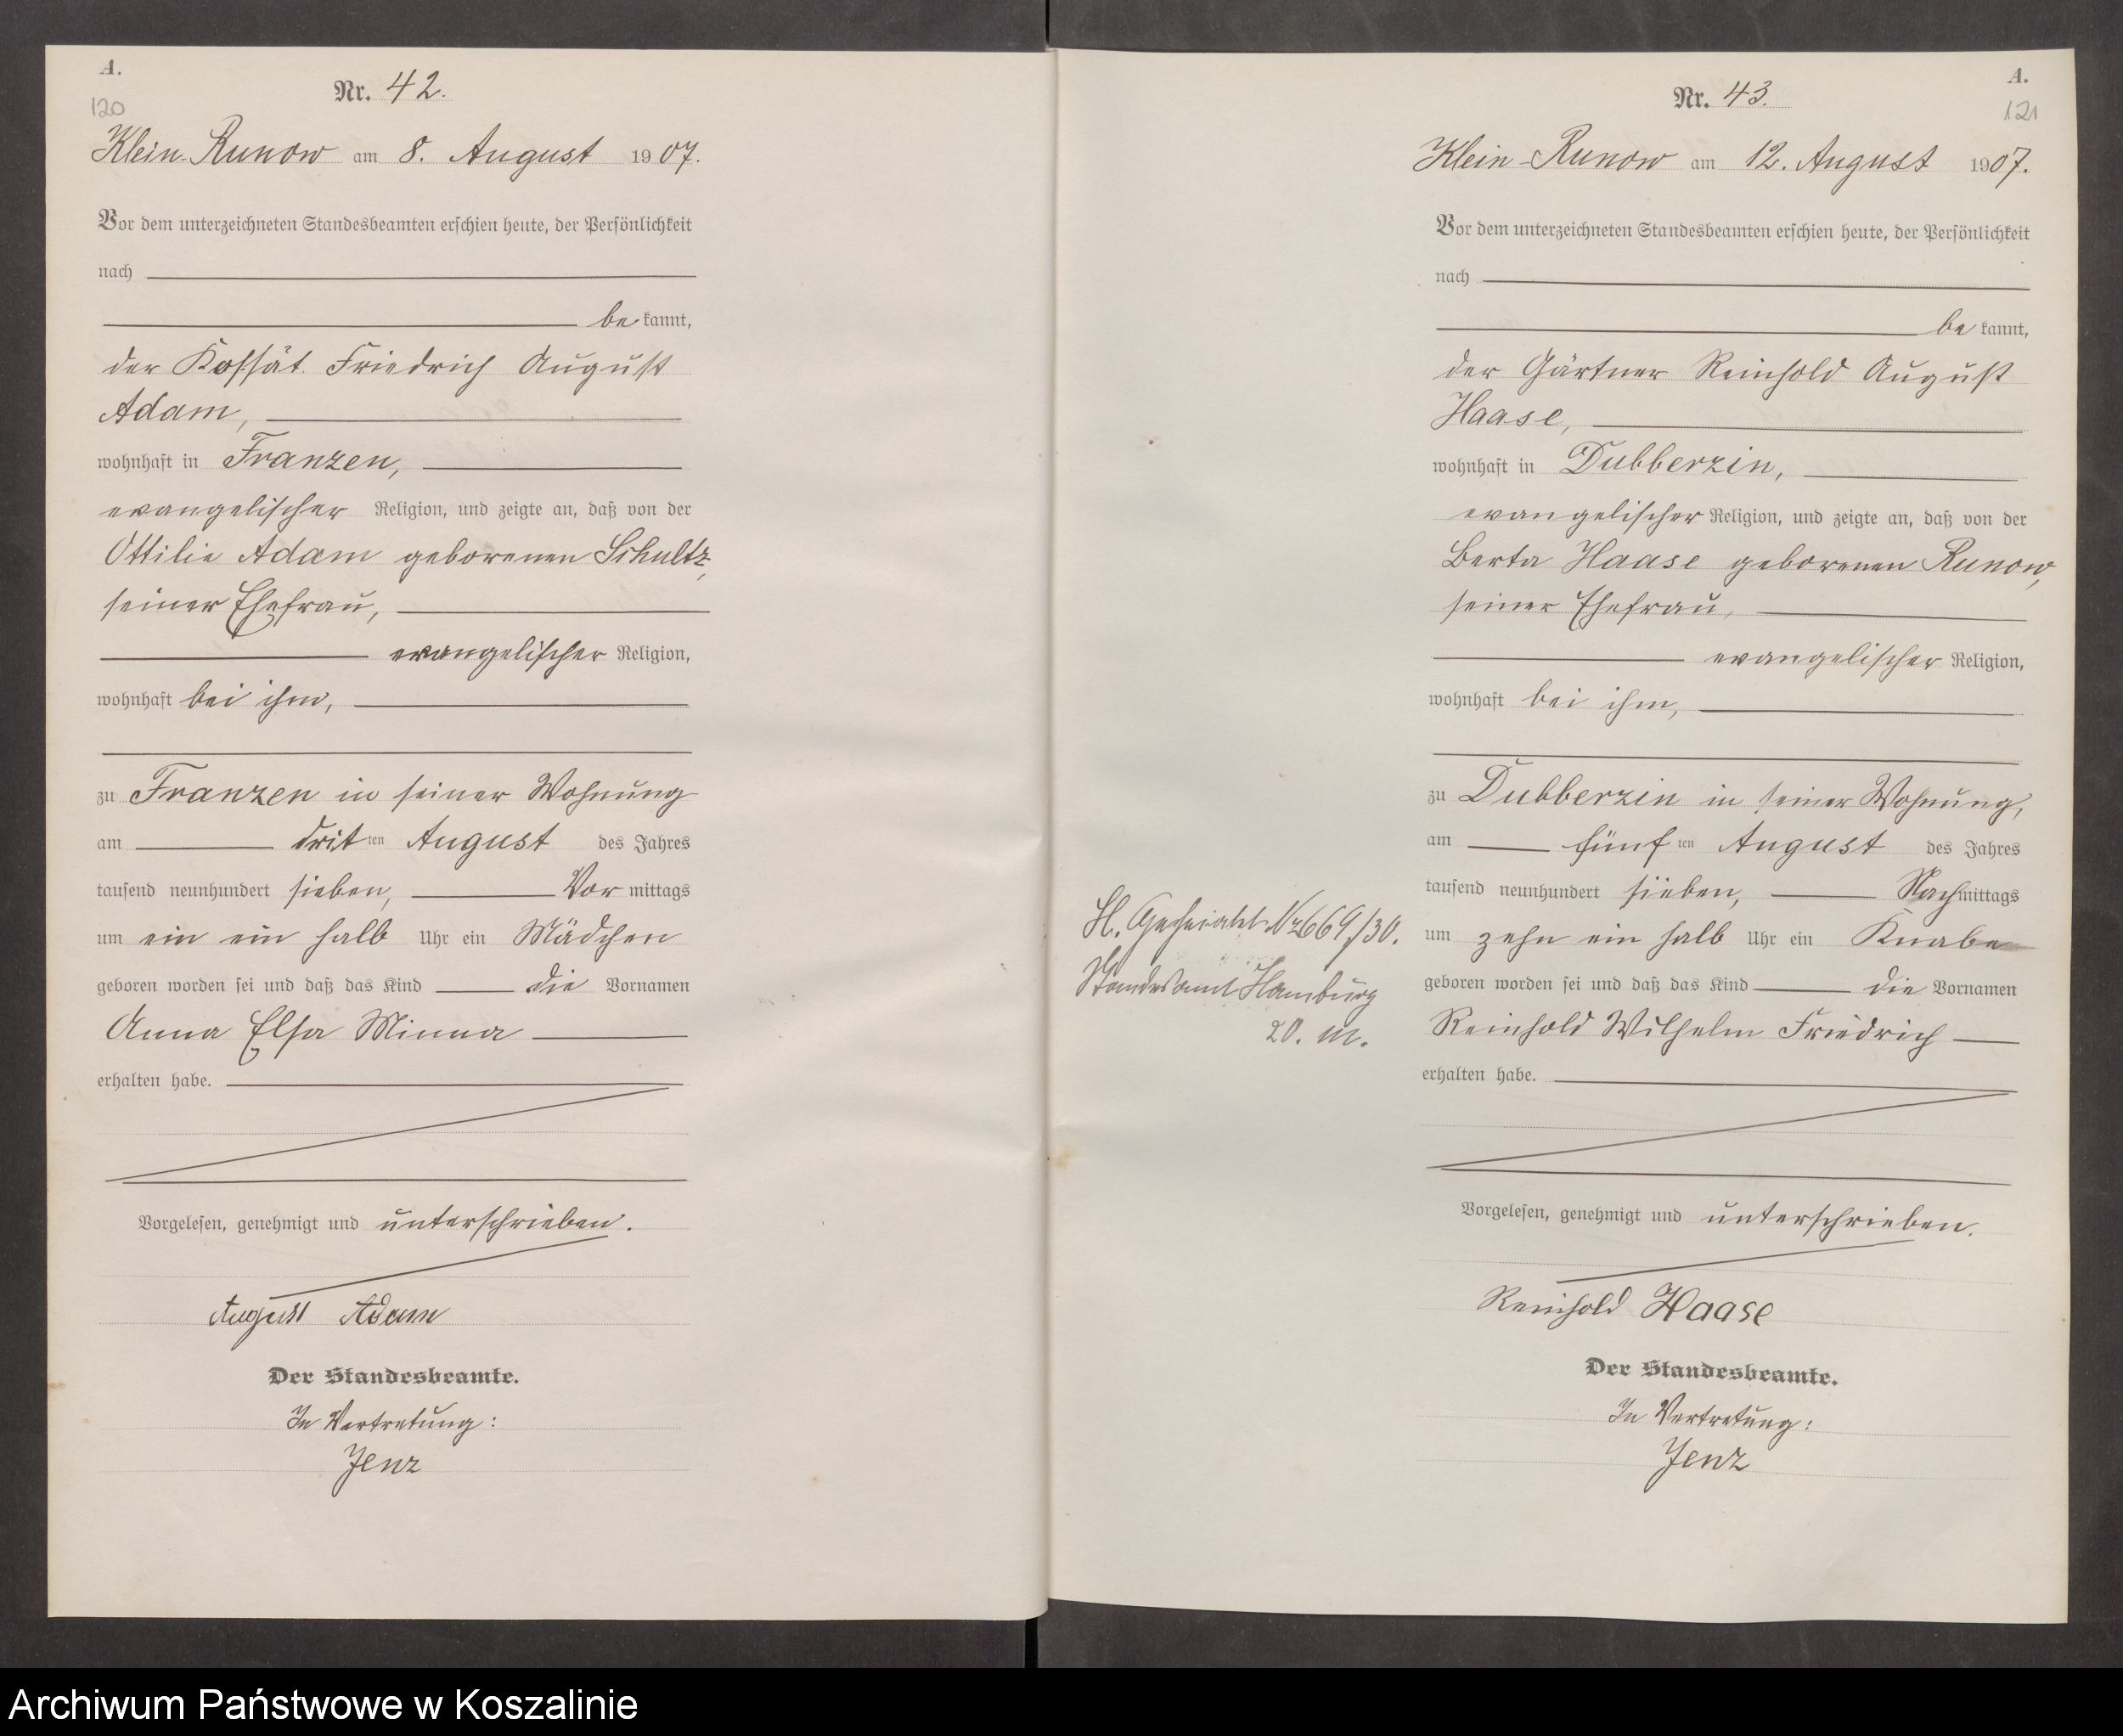 A.
120
Nr. 42.
Klein-Runow am 8. August 1907.
Vor dem unterzeichneten Standesbeamten erschien heute, der Persönlichkeit
nach
bekannt,
der Kossät Friedrich August
Adam,
wohnhaft in Franzen,
evangelischer Religion, und zeigte an, daß von der
Ottilie Adam geborenen Schultz,
seiner Ehefrau,
evangelischer Religion,
wohnhaft bei ihm,
zu Franzen in seiner Wohnung
am dritten August des Jahres
tausend neunhundert sieben, Vormittags
um ein ein halb Uhr ein Mädchen
geboren worden sei und daß das Kind die Vornamen
Anna Elsa Minna
erhalten habe.
Vorgelesen, genehmigt und unterschrieben.
August Adam
Der Standesbeamte.
In Vertretung:
Jenz
A.
121
Nr. 43.
Klein-Runow am 12. August 1907.
Vor dem unterzeichneten Standesbeamten erschien heute, der Persönlichkeit
nach
bekannt,
der Gärtner Reinhold August
Haase,
wohnhaft in Dubberzin,
evangelischer Religion, und zeigte an, daß von der
Berta Haase geborenen Runow,
seiner Ehefrau,
evangelischer Religion,
wohnhaft bei ihm,
zu Dubberzin in seiner Wohnung,
am fünften August des Jahres
tausend neunhundert sieben, Nachmittags
um zehn ein halb Uhr ein Knabe
geboren worden sei und daß das Kind die Vornamen
Reinhold Wilhelm Friedrich
erhalten habe.
Vorgelesen, genehmigt und unterschrieben.
Reinhold Haase
Der Standesbeamte.
In Vertretung:
Jenz
Geheiratet Nr 669/30.
Standesamt Hamburg
20.
Archiwum Państwowe w Koszalinie